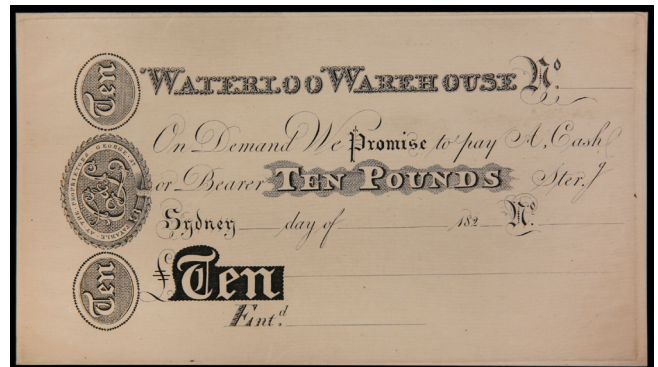 Ten
WATERLOO WAREHOUSE No.
On Demand We Promise to pay A, Cash
or Bearer TEN POUNDS Ster.g
Sydney day of 182 No.
£ Ten
Ent.d
Ten